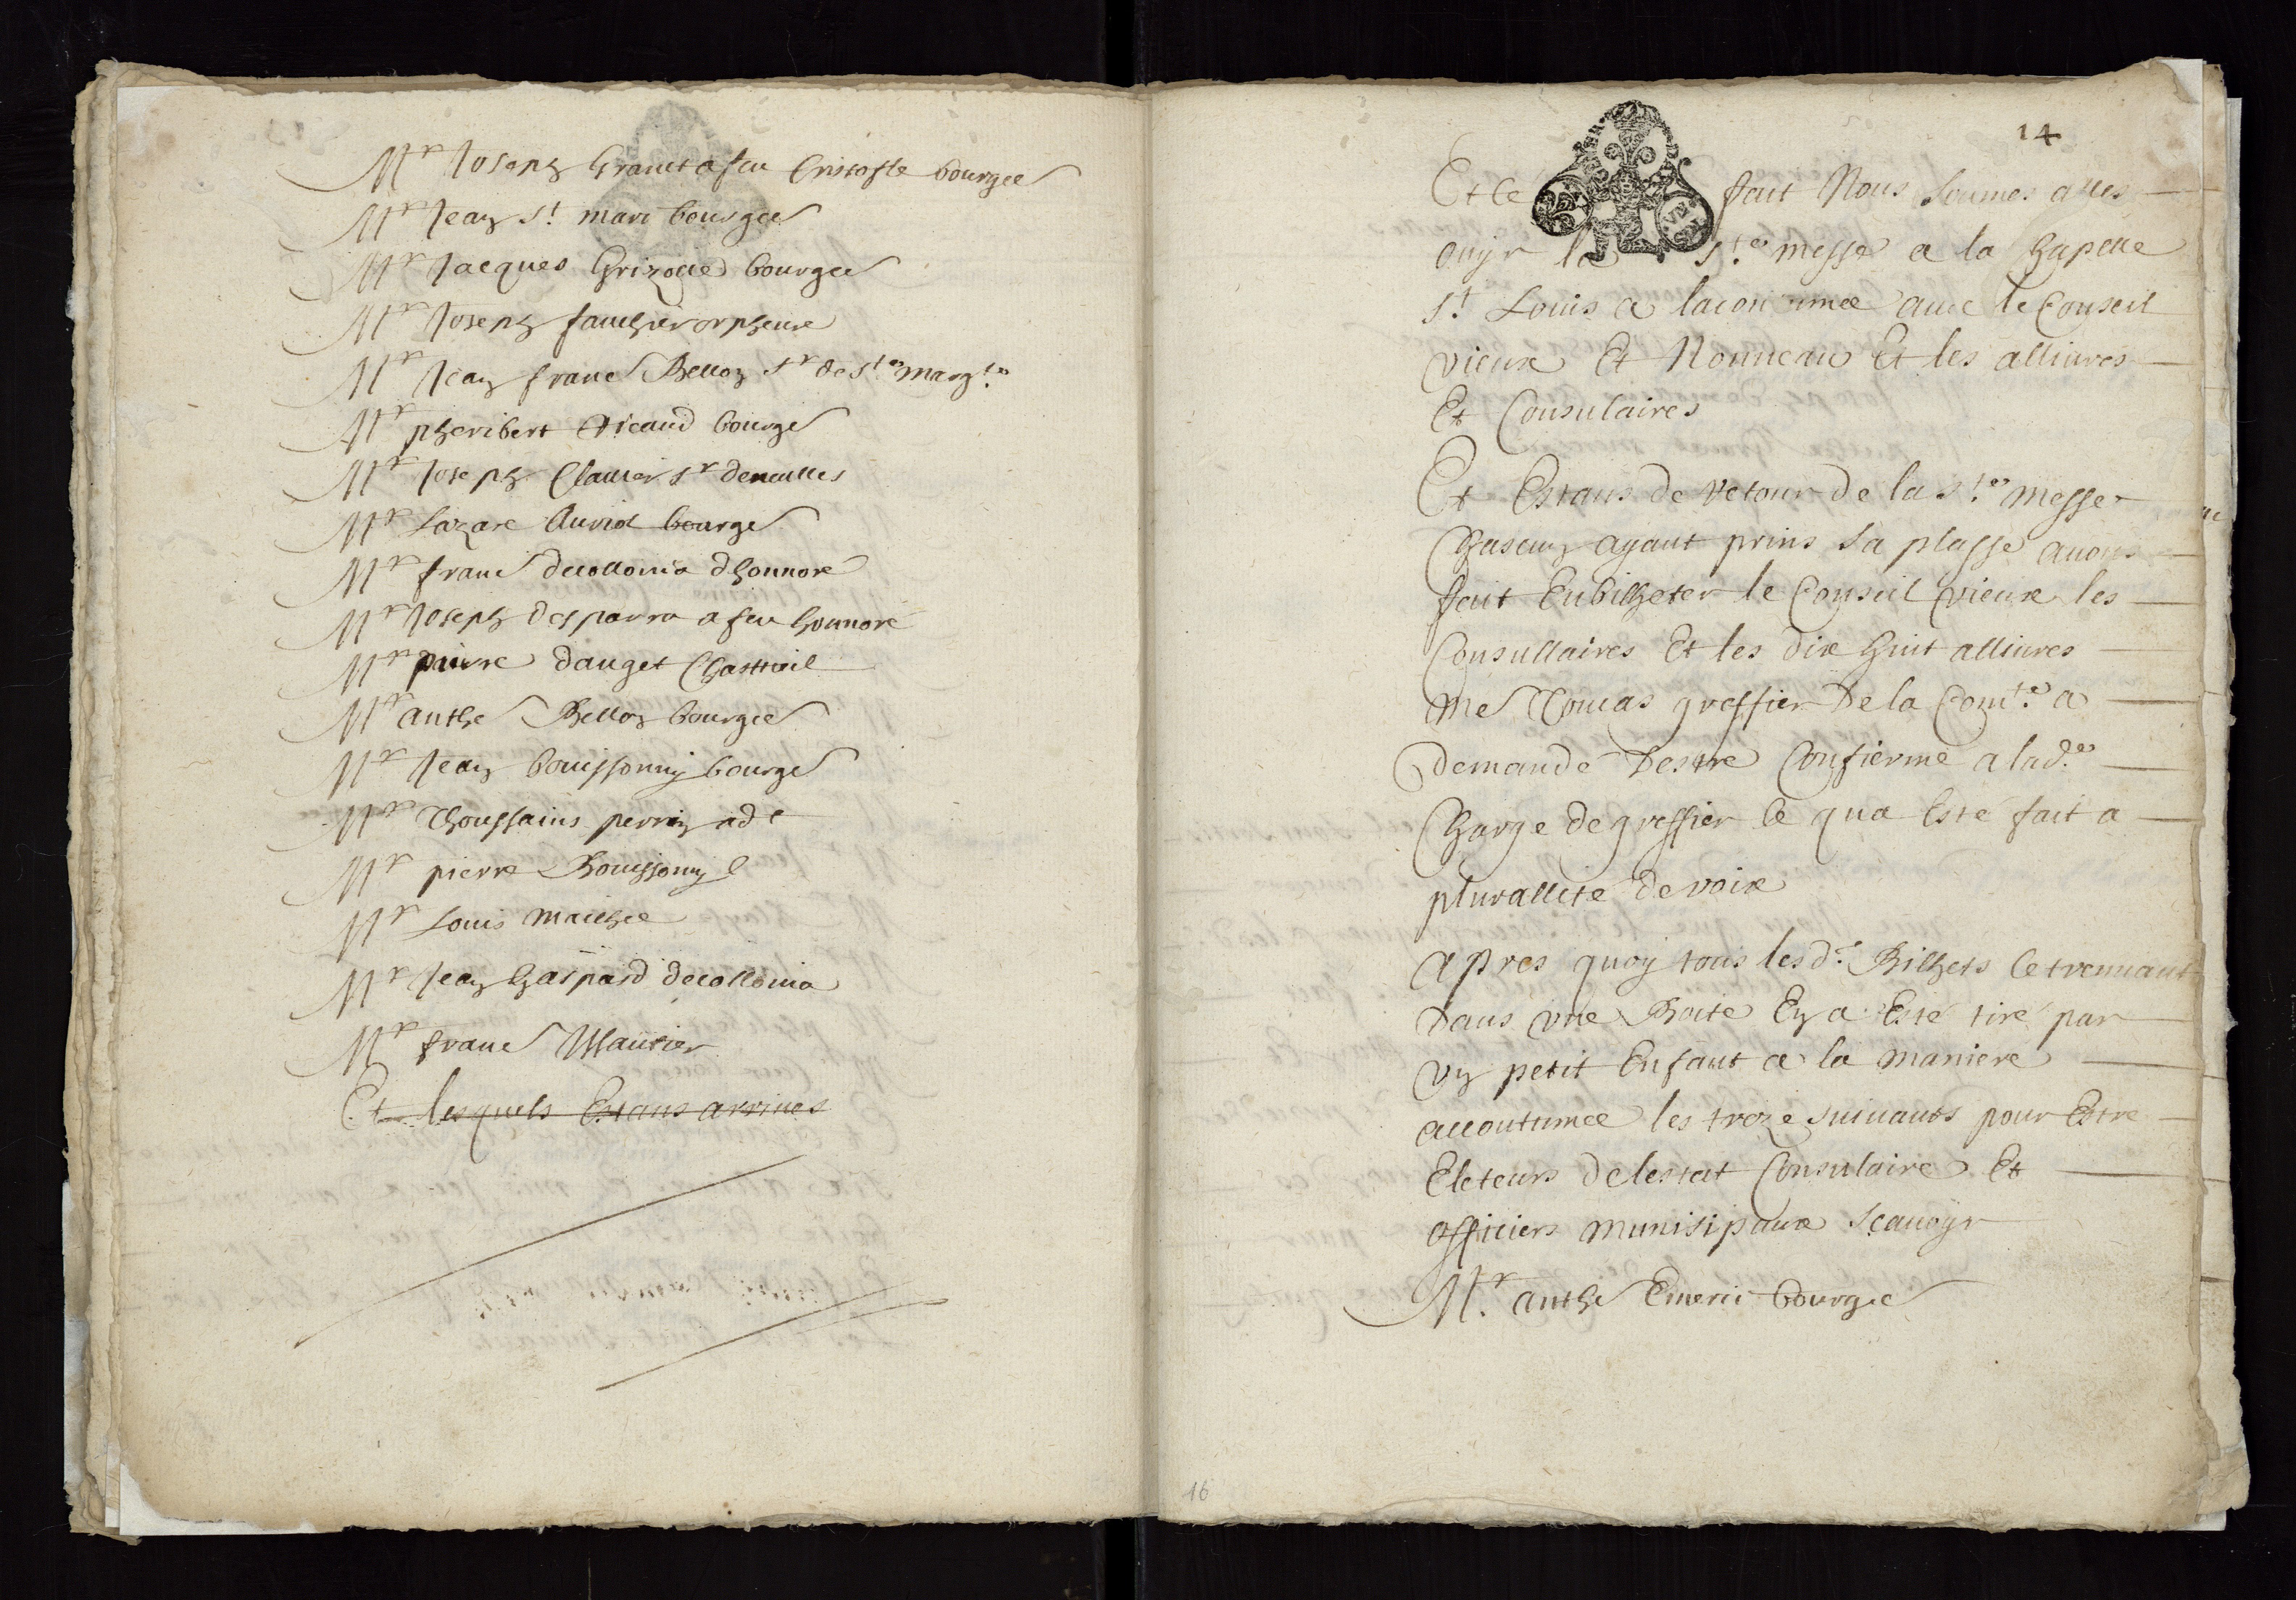 Mr Joseph Granet a feu Cristofle bourgee
Mr Jean St marc bourgee
Mr Jacques Grizolle bourgee
Mr Joseph fauchier orpheure
Mr Jean franc Bellon sr de ste margte
Mr pheribert Aicaud bourge
Mr Joseph Clavier sr de neulles
Mr Lazare Auriol bourge
Mr franc decollonia dhonnore
Mr Joseph desparra a feu honnore
Mr pierre dauget Chasteuil
Mr anthe Bellon bourgee
Mr Jean bouissonny bourge
Mr Thoussains perrin ade
Mr pierre Bouissony
Mr Louis mailhee
Mr Jean Gaspard decollonia
Mr franc Maurier
Et lesquels Estans arrives
14
Et ce fait Nous soumes alles
ouyr la ste messe a la chapelle
st Louis a lacoutumee avec le Conseil
vieux Et Nouveau Et les allivres
Et Consulaires
Et Estans de retour de la ste messe
Chascun ayant prins sa plasse avons
fait Enbilheter le Conseil vieux les
Consullaires Et les dix huit allivres
me Thouas greffier De la Comte a
demandé Destre Confierme a lade
Charge de greffier Ce qua Esté fait a
plurallité de voix
apres quoy tous lesd. Bilhets Cetreuvant
Dans une Boite En a Esté tiré par
un petit Enfant a la maniere
accoutumee les treze suivants pour Estre
Eleteurs delestat Consulaire Et
officiers munisipaux scavoyr
Mr. anthe Emeric bourgee
16